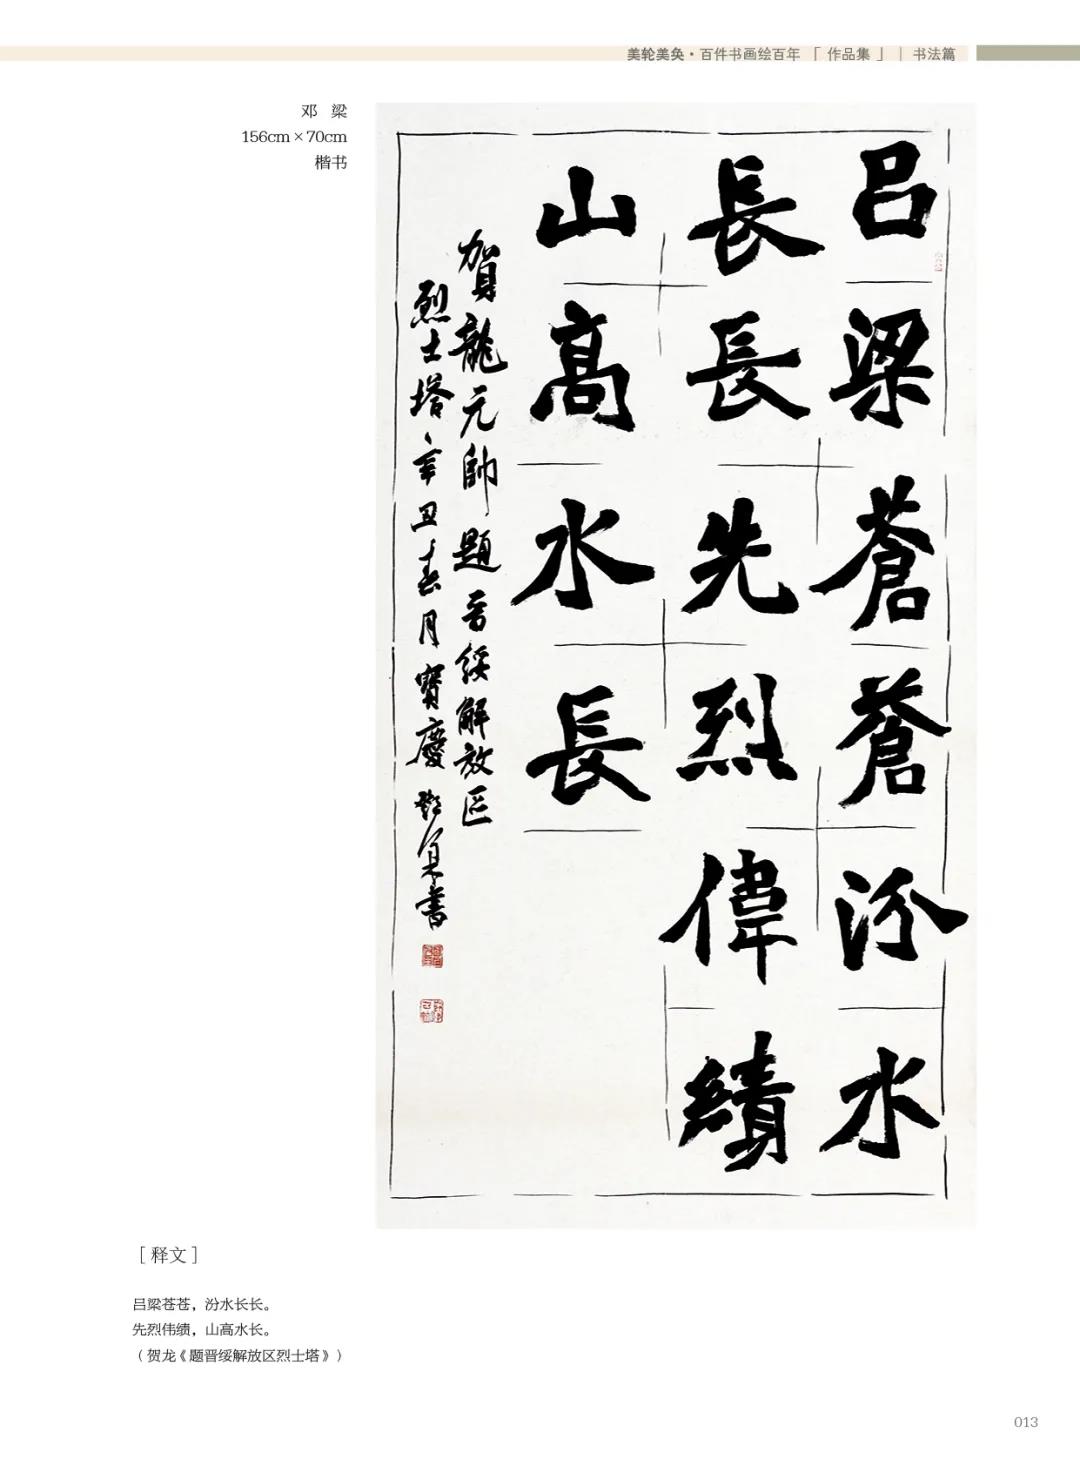 美轮美奂·百件书画绘百年「作品集」｜书法篇
邓 梁
156cm×70cm
楷书
吕梁蒼蒼汾水
長長先烈偉績
山高水長
賀龍元帥題晋綏解放区
烈士塔辛丑春月寶慶鄧梁書
［释文］
吕梁苍苍，汾水长长。
先烈伟绩，山高水长。
（贺龙《题晋绥解放区烈士塔》）
013